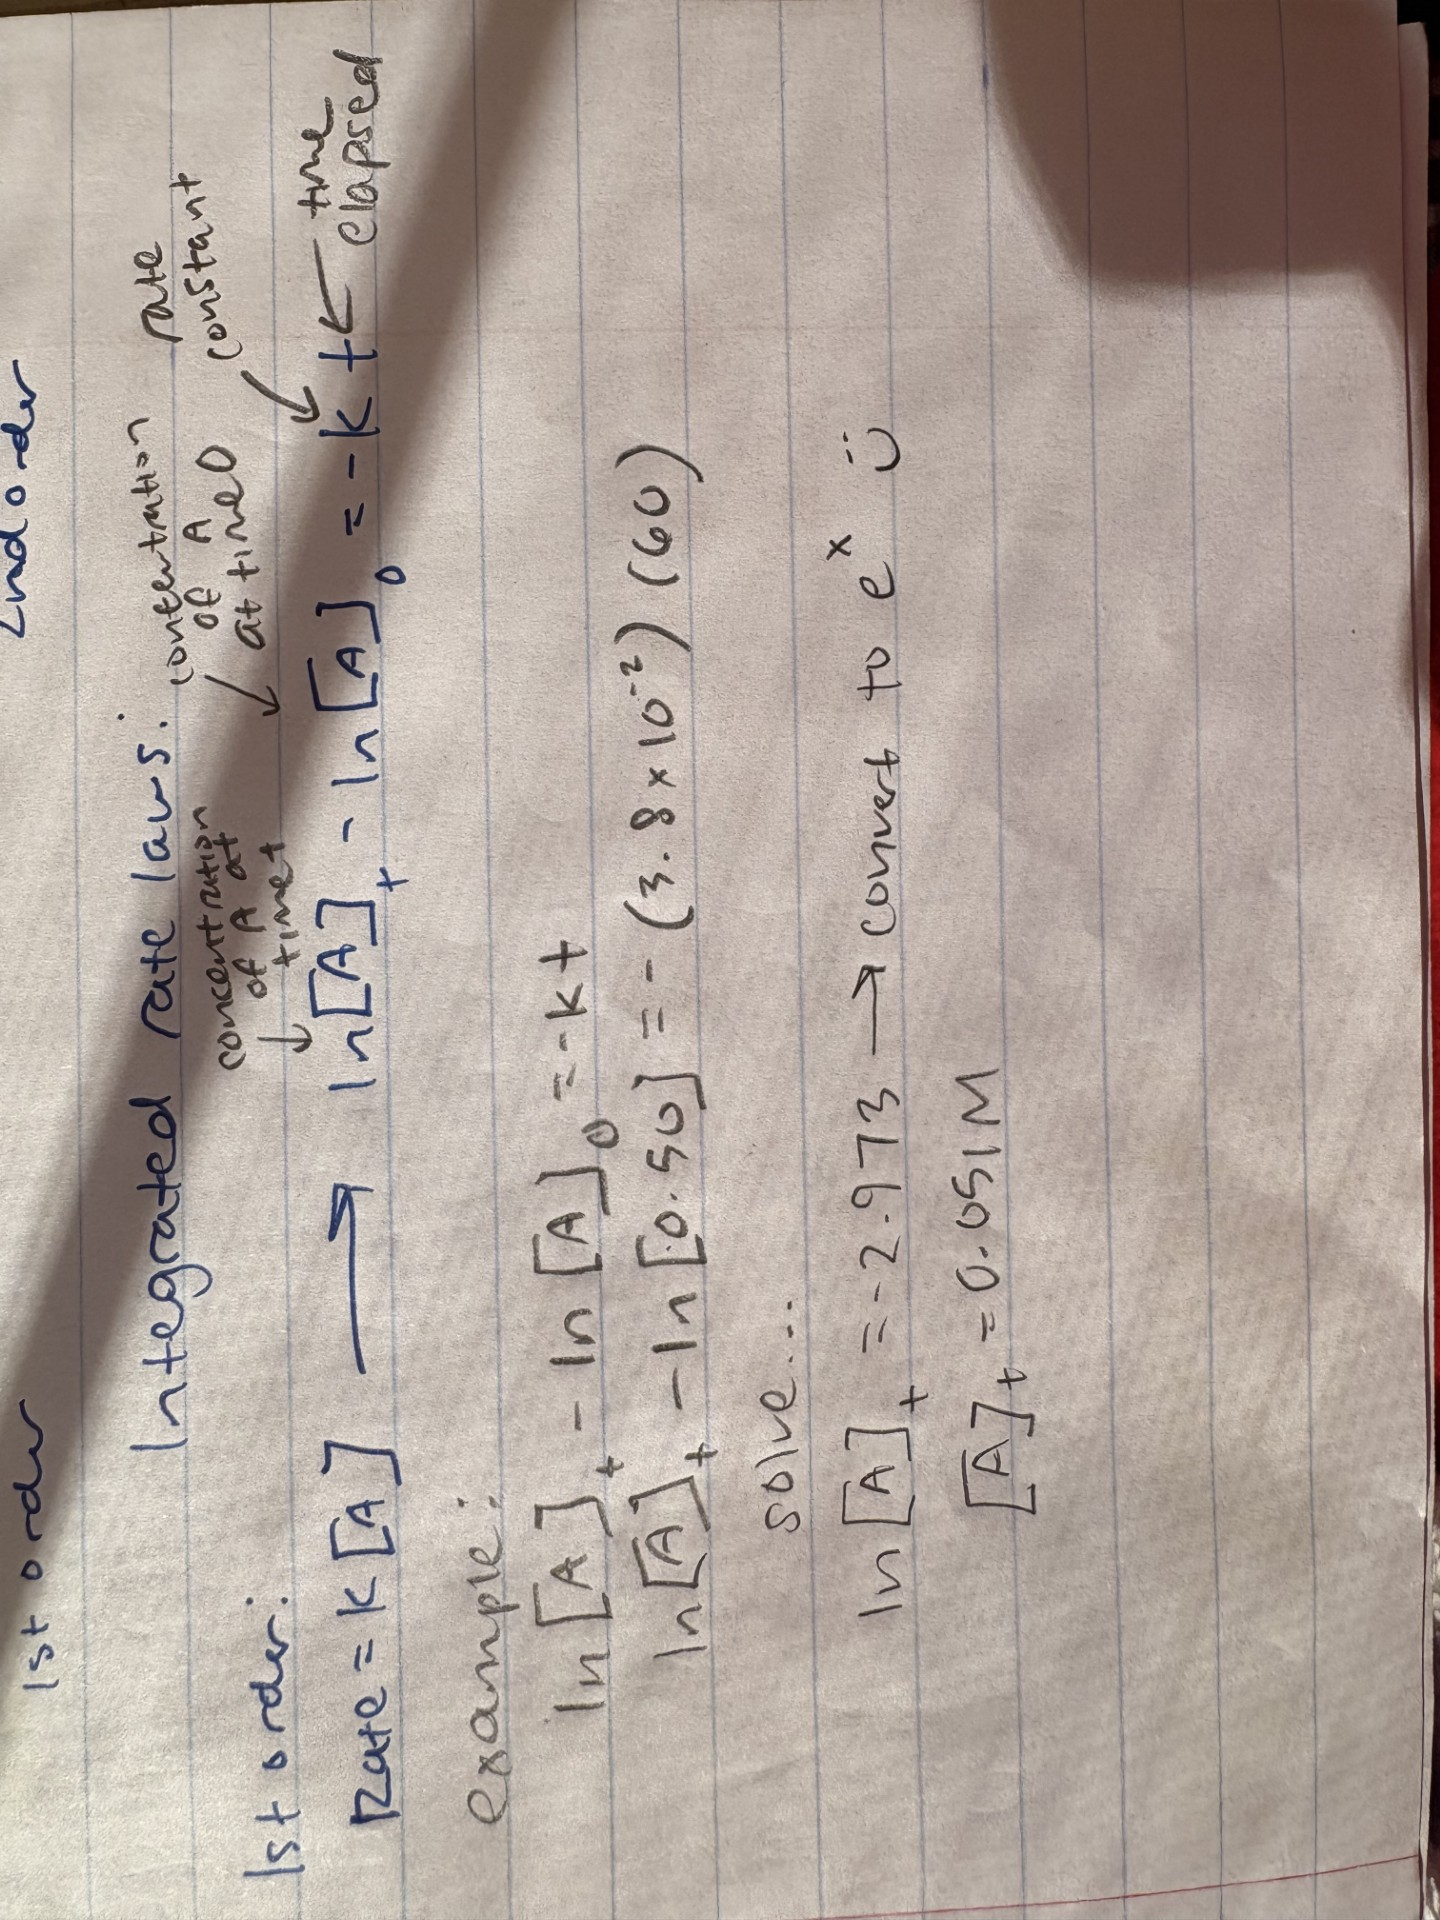 1st order 2nd order
Integrated rate laws:
concentration of A at time t
concentration of A at time 0
rate constant
1st order:
Rate = k[A] → ln[A]t - ln[A]0 = -kt ← time elapsed
example:
ln[A]t - ln[A]0 = -kt
ln[A]t - ln[0.50] = -(3.8×10⁻²)(60)
solve...
ln[A]t = -2.973 → convert to eˣ :)
[A]t = 0.051M